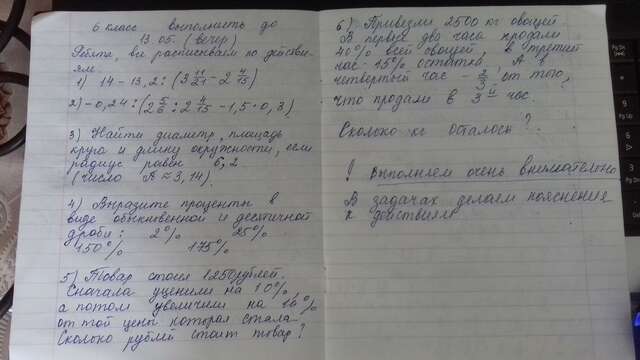 6 класс выполнить до
13.05. (вечер)
Ребята, все расписываем по действи-
ям.
1) 14-13,2:(3 11/21 - 2 4/15)
2) -0,24:(2 5/6 : 2 4/15 - 1,5·0,3)
3) Найти диаметр, площадь
круга и длину окружности, если
радиус равен 6,2
(число π ≈ 3,14).
4) Выразите проценты в
виде обыкновенной и десятичной
дроби: 2% 25%
150% 175%
5) Товар стоил 1250 рублей.
Сначала уценили на 10%,
а потом увеличили на 16%
от той цены которая стала.
Сколько рублей стоит товар?
6) Привезли 2500 кг овощей.
В первых два часа продали
40% всей овощей, в третий
час - 45% остатка, А в
четвертый час - 2/3 от того,
что продали в 3й час.
Сколько кг осталось?
! Выполняем очень внимательно
В задачах делаем пояснения
к действиям